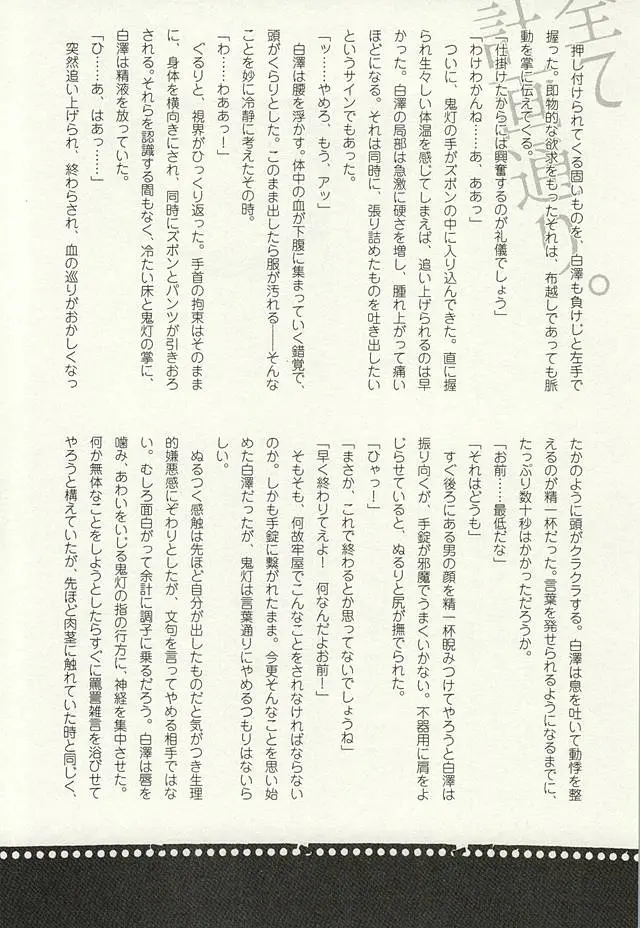 全て
計画通り。
　押し付けられてくる固いものを、白澤も負けじと左手で
握った。即物的な欲求をもったそれは、布越しであっても脈
動を掌に伝えてくる。
「仕掛けたからには興奮するのが礼儀でしょう」
「わけわかんね……あ、ああっ」
　ついに、鬼灯の手がズボンの中に入り込んできた。直に握
られ生々しい体温を感じてしまえば、追い上げられるのは早
かった。白澤の局部は急激に硬さを増し、腫れ上がって痛い
ほどになる。それは同時に、張り詰めたものを吐き出したい
というサインでもあった。
「ッ……やめろ、もう、アッ」
　白澤は腰を浮かす。体中の血が下腹に集まっていく錯覚で、
頭がくらりとした。このまま出したら服が汚れる――そんな
ことを妙に冷静に考えたその時。
「わ……わああっ！」
　ぐるりと、視界がひっくり返った。手首の拘束はそのまま
に、身体を横向きにされ、同時にズボンとパンツが引きおろ
される。それらを認識する間もなく、冷たい床と鬼灯の掌に、
白澤は精液を放っていた。
「ひ……あ、はあっ……」
　突然追い上げられ、終わらされ、血の巡りがおかしくなっ
たかのように頭がクラクラする。白澤は息を吐いて動悸を整
えるのが精一杯だった。言葉を発せられるようになるまでに、
たっぷり数十秒はかかっただろうか。
「お前……最低だな」
「それはどうも」
　すぐ後ろにある男の顔を精一杯睨みつけてやろうと白澤は
振り向くが、手錠が邪魔でうまくいかない。不器用に肩をよ
じらせていると、ぬるりと尻が撫でられた。
「ひゃっ！」
「まさか、これで終わるとか思ってないでしょうね」
「早く終わりてえよ！　何なんだよお前！」
　そもそも、何故牢屋でこんなことをされなければならない
のか。しかも手錠に繋がれたまま。今更そんなことを思い始
めた白澤だったが、鬼灯は言葉通りにやめるつもりはないら
しい。
　ぬるつく感触は先ほど自分が出したものだと気がつき生理
的嫌悪感にぞわりとしたが、文句を言ってやめる相手ではな
い。むしろ面白がって余計に調子に乗るだろう。白澤は唇を
噛み、あわいをいじる鬼灯の指の行方に、神経を集中させた。
何か無体なことをしようとしたらすぐに罵詈雑言を浴びせて
やろうと構えていたが、先ほど肉茎に触れていた時と同じく、